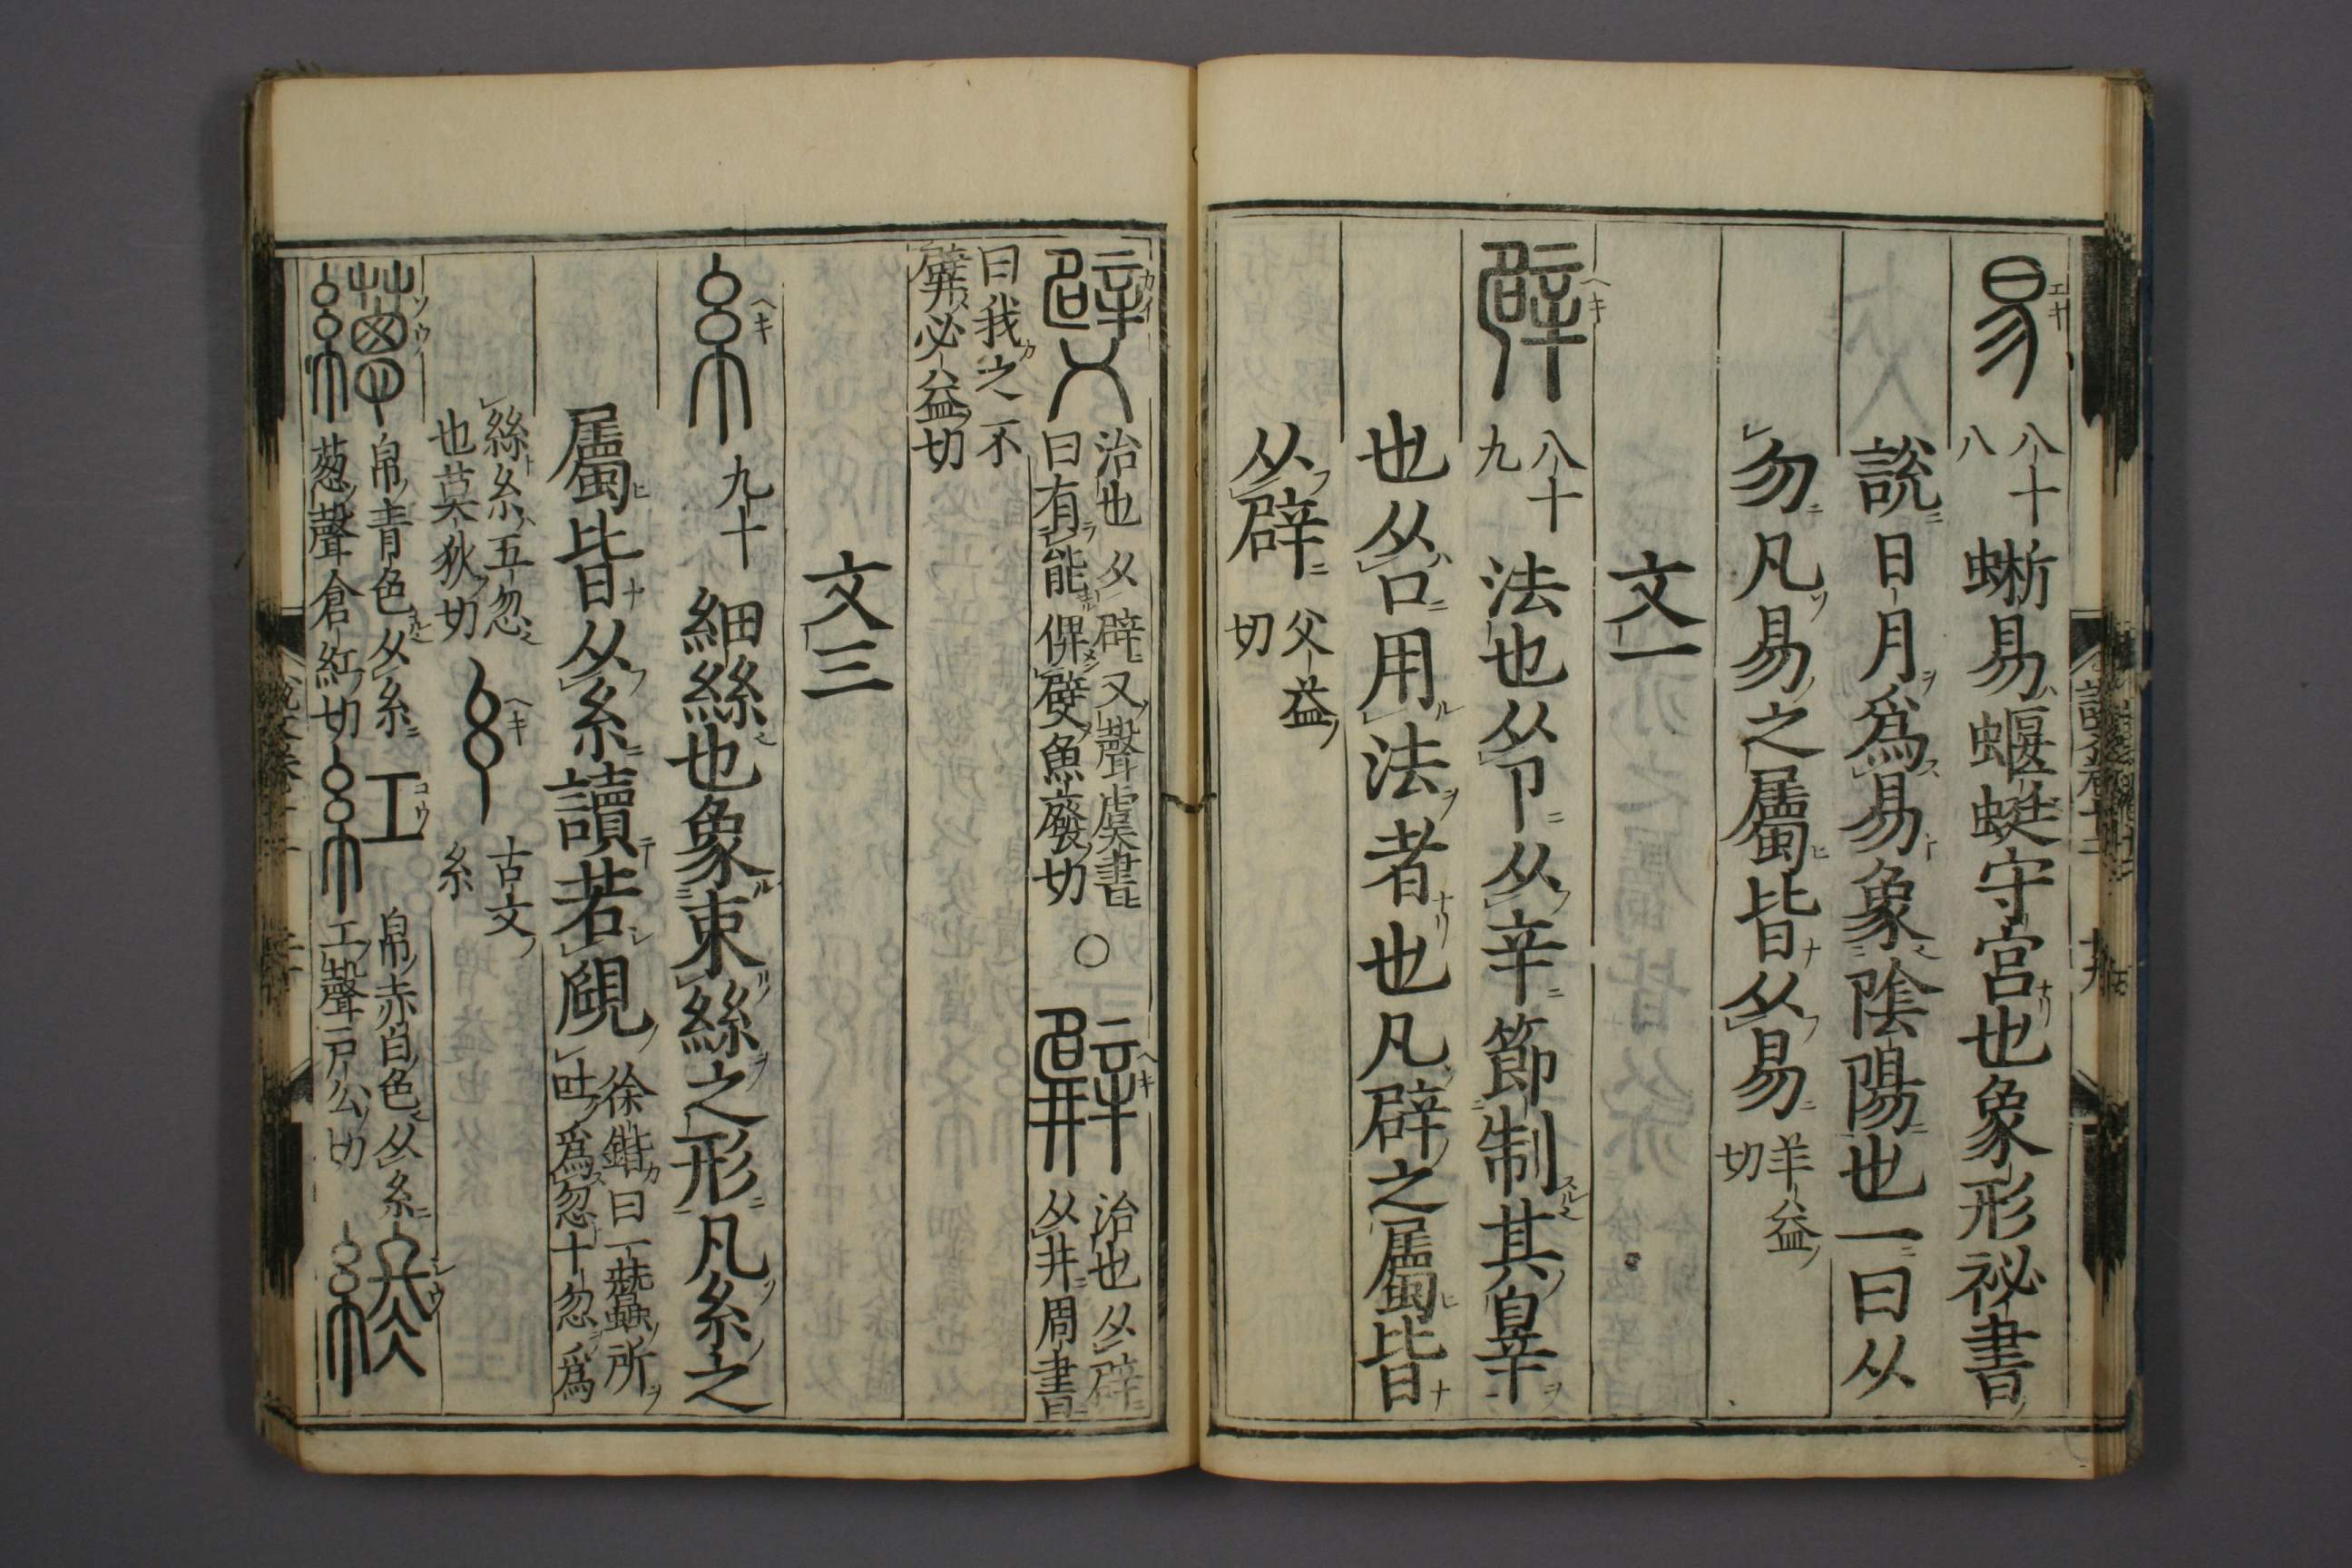 易 八十八 蜥易蝘蜓守宮也象形祕書
說日月爲易象陰陽也一曰从
勿凡易之屬皆从易 羊益切
文一
辟 八十九 法也从卩从辛節制其辠
也从口用法者也凡辟之屬皆
从辟 父益切
治也从辟又聲虞書
曰有能俾㕢魚廢切
○
治也从辟
从井周書
曰我之不
𨐨必益切
文三
糸 九十 細絲也象束絲之形凡糸之
屬皆从糸讀若覛 徐鍇曰一蠶所
吐爲忽十忽爲
絲糸五忽
也莫狄切
古文
糸
繱 帛青色从糸
蔥聲倉紅切
紅 帛赤白色从糸
工聲戸公切
終